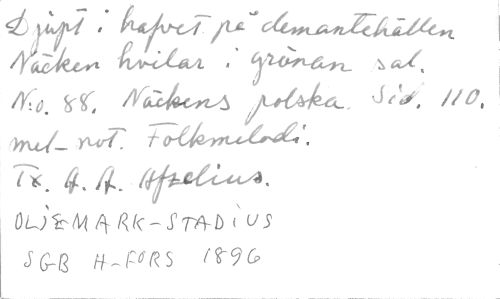 Djupt i hafvet på demantehällen
Näcken hvilar i grönan sal.
N:o. 88. Näckens polska. Sid. 110.
mel-not. Folkmelodi.
Tx. A. A. Afzelius.
OLJEMARK-STADIUS
SGB H-FORS 1896